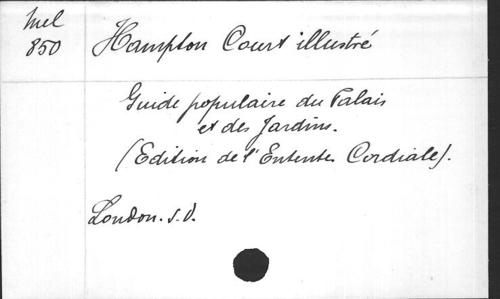 Mel
850
Hampton Court illustré
Guide populaire du Palais
et des Jardins.
(Edition de l'Entente Cordiale).
London. s.d.